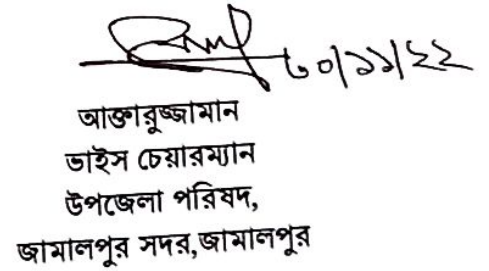 ৩০/১১/২২
আক্তারুজ্জামান
ভাইস চেয়ারম্যান
উপজেলা পরিষদ,
জামালপুর সদর,জামালপুর